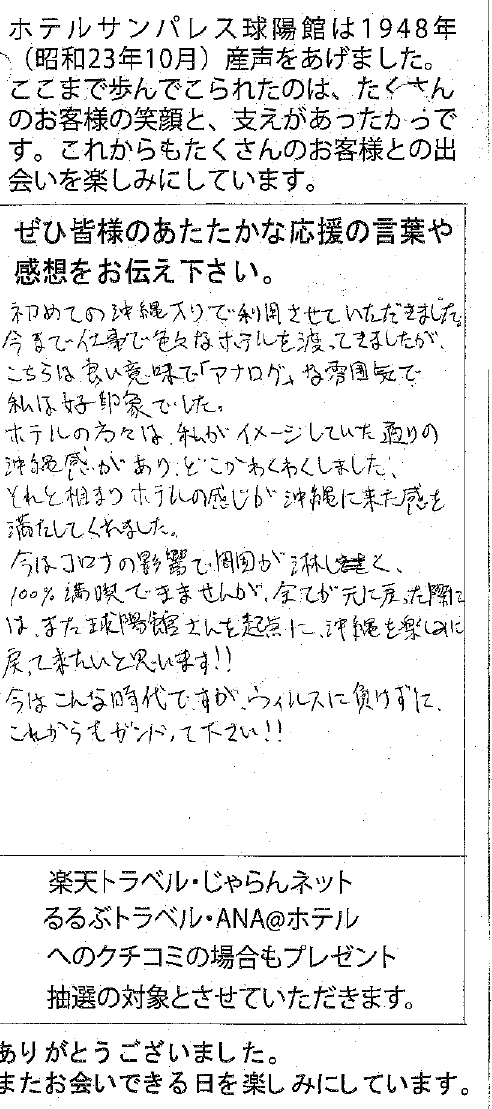 ホテルサンパレス球陽館は1948年
（昭和23年10月）産声をあげました。
ここまで歩んでこられたのは、たくさん
のお客様の笑顔と、支えがあったからで
す。これからもたくさんのお客様との出
会いを楽しみにしています。
ぜひ皆様のあたたかな応援の言葉や
感想をお伝え下さい。
初めての沖縄入りで利用させていただきました。
今まで仕事で色々なホテルを渡ってきましたが、
こちらは良い意味で「アナログ」な雰囲気で
私は好印象でした。
ホテルの方々は、私がイメージしていた通りの
沖縄感があり、どこかわくわくしました、
それと相まりホテルの感じが沖縄に来た感を
満たしてくれました。
今はコロナの影響で周囲が淋しく、
100%満喫できませんが、全てが元に戻った際に
は、また球陽館さんを起点に、沖縄を楽しみに
戻って来たいと思います!!
今はこんな時代ですが、ウィルスに負けずに、
これからもガンバって下さい!!
楽天トラベル・じゃらんネット
るるぶトラベル・ANA@ホテル
へのクチコミの場合もプレゼント
抽選の対象とさせていただきます。
ありがとうございました。
またお会いできる日を楽しみにしています。